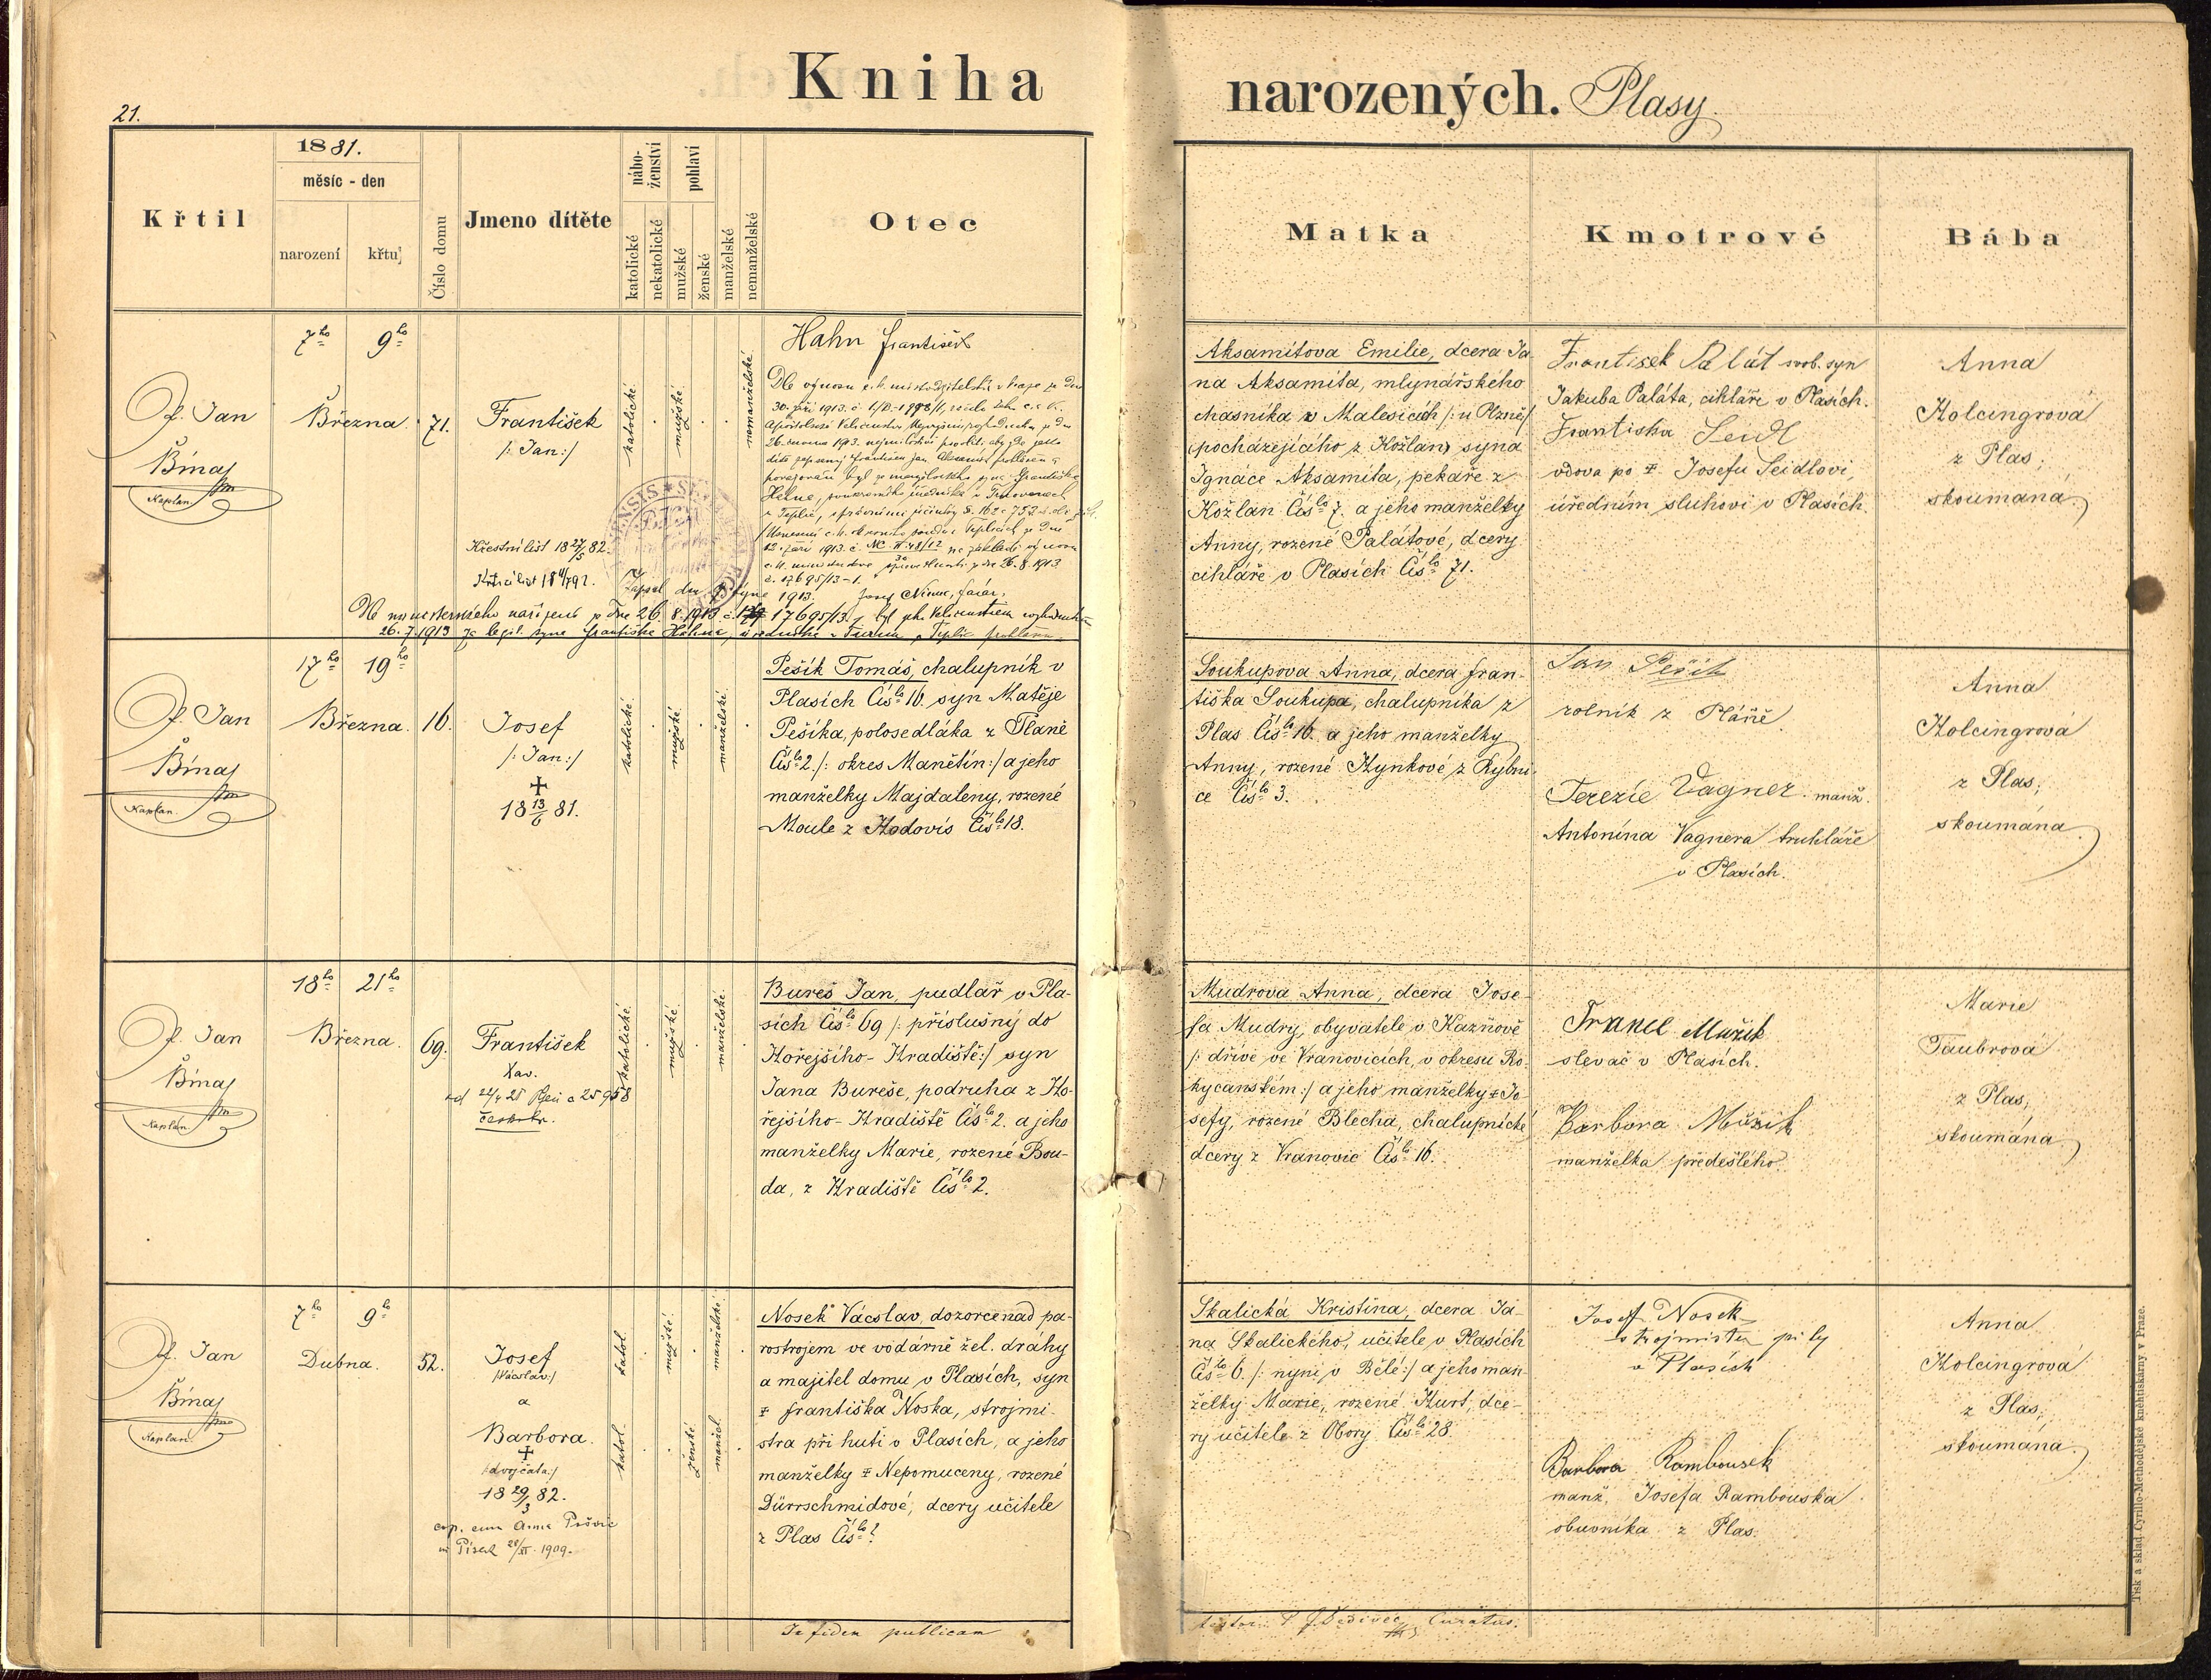 Kniha narozených. Plasy
21.
1881.
měsíc - den
Křtil
narození
křtu
Číslo domu
Jmeno dítěte
nábo-
ženství
katolické
nekatolické
pohlaví
mužské
ženské
manželské
nemanželské
Otec
Matka
Kmotrové
Bába
7ho
9ho
P. Jan
Března.
71.
František
/: Jan :/
Bínaj
Kaplan
katolické
mužské
nemanželské
Křestní list 18 27/5 82.
Hahn František
30. září 1913.
26. 1913.
Zapsal dne října 1913. Josef Němec, farář.
26. 8. 1913 17695/13
26. 7. 1913
Aksamitova Emilie, dcera Ja-
na Aksamita, mlynářského
chasníka v Malesicích /: u Plzně/
pocházejícího z Kožlan syna
Ignáce Aksamita, pekaře z
Kožlan Čís lo 7. a jeho manželky
Anny, rozené Palátové, dcery
cihláře v Plasích Čís lo 71.
František Palát svob. syn
Jakuba Paláta, cihláře v Plasích.
Františka Seidl
vdova po ‡ Josefu Seidlovi,
úředním sluhovi v Plasích.
Anna
Holcingrová
z Plas,
skoumaná.
17ho
19ho
P. Jan
Března.
16.
Josef
/: Jan :/
Bínaj
Kaplan.
+
18 13/6 81.
katolické
mužské
manželské
Pešík Tomáš, chalupník v
Plasích Čís lo 16. syn Matěje
Pešíka, polosedláka z Planě
Čís lo 2. /: okres Manětín :/ a jeho
manželky Majdaleny, rozené
Moule z Hodovis Čís lo 18.
Soukupova Anna, dcera Fran-
tiška Soukupa, chalupníka z
Plas Čís lo 16. a jeho manželky
Anny, rozené Hynkové z Rybni-
ce Čís lo 3.
Jan Pešík
rolník z Pláně
Terezie Vagner manž.
Antonína Vagnera truhláře
v Plasích.
Anna
Holcingrová
z Plas,
skoumána
18ho
21ho
P. Jan
Března.
69.
František
Xav.
Bínaj
Kaplan
katolické
mužské
manželské
Bureš Jan, pudlař v Pla-
sích Čís lo 69 /: příslušný do
Hořejšího-Hradiště :/ syn
Jana Bureše, podruha z Ho-
řejšího-Hradiště Čís lo 2. a jeho
manželky Marie, rozené Bou-
da, z Hradiště Čís lo 2.
Mudrova Anna, dcera Jose-
fa Mudry, obyvatele v Kazňově
/: dříve ve Vranovicích, v okresu Ro-
kycanském :/ a jeho manželky ‡ Jo-
sefy, rozené Blecha, chalupnické
dcery z Vranovic Čís lo 16.
Franc Mužik
slevač v Plasích.
Barbora Mužik
manželka předešlého.
Marie
Taubrová
z Plas,
skoumána
7ho
9ho
P. Jan
Dubna.
52.
Josef
/:Václav:/
a
Barbora.
+
/:dvojčata:/
18 29/3 82.
Bínaj
Kaplan
28/XI. 1909.
katol.
mužské
manželské
katol.
ženské
manžel.
Nosek Václav, dozorce nad pa-
rostrojem ve vodárně žel. dráhy
a majitel domu v Plasích, syn
‡ Františka Noska, strojmi-
stra při huti v Plasích, a jeho
manželky ‡ Nepomuceny, rozené
Dürrschmidové, dcery učitele
z Plas Čís lo ?
Skalická Kristina, dcera Ja-
na Skalického, učitele v Plasích
Čís lo 6. /: nyní v Bělé :/ a jeho man-
želky Marie, rozené Kurt, dce-
ry učitele z Obory Čís lo 28.
Josef Nosek
strojmistr
v Plasích
Barbora Rambousek
manž. Josefa Rambouska
obuvníka z Plas.
Anna
Holcingrová
z Plas,
skoumána.
In fidem publicam
Curatus.
Tisk a sklad Cyrillo-Methodějské knihtiskárny v Praze.